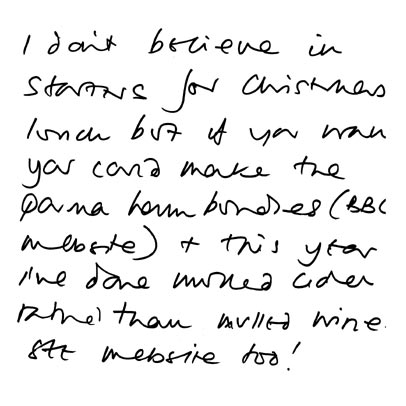 I don't believe in
starters for Christmas
lunch but if you want
you could make the
parma ham bundles (BBC
website) + this year
I've done mulled cider
rather than mulled wine.
See website too!